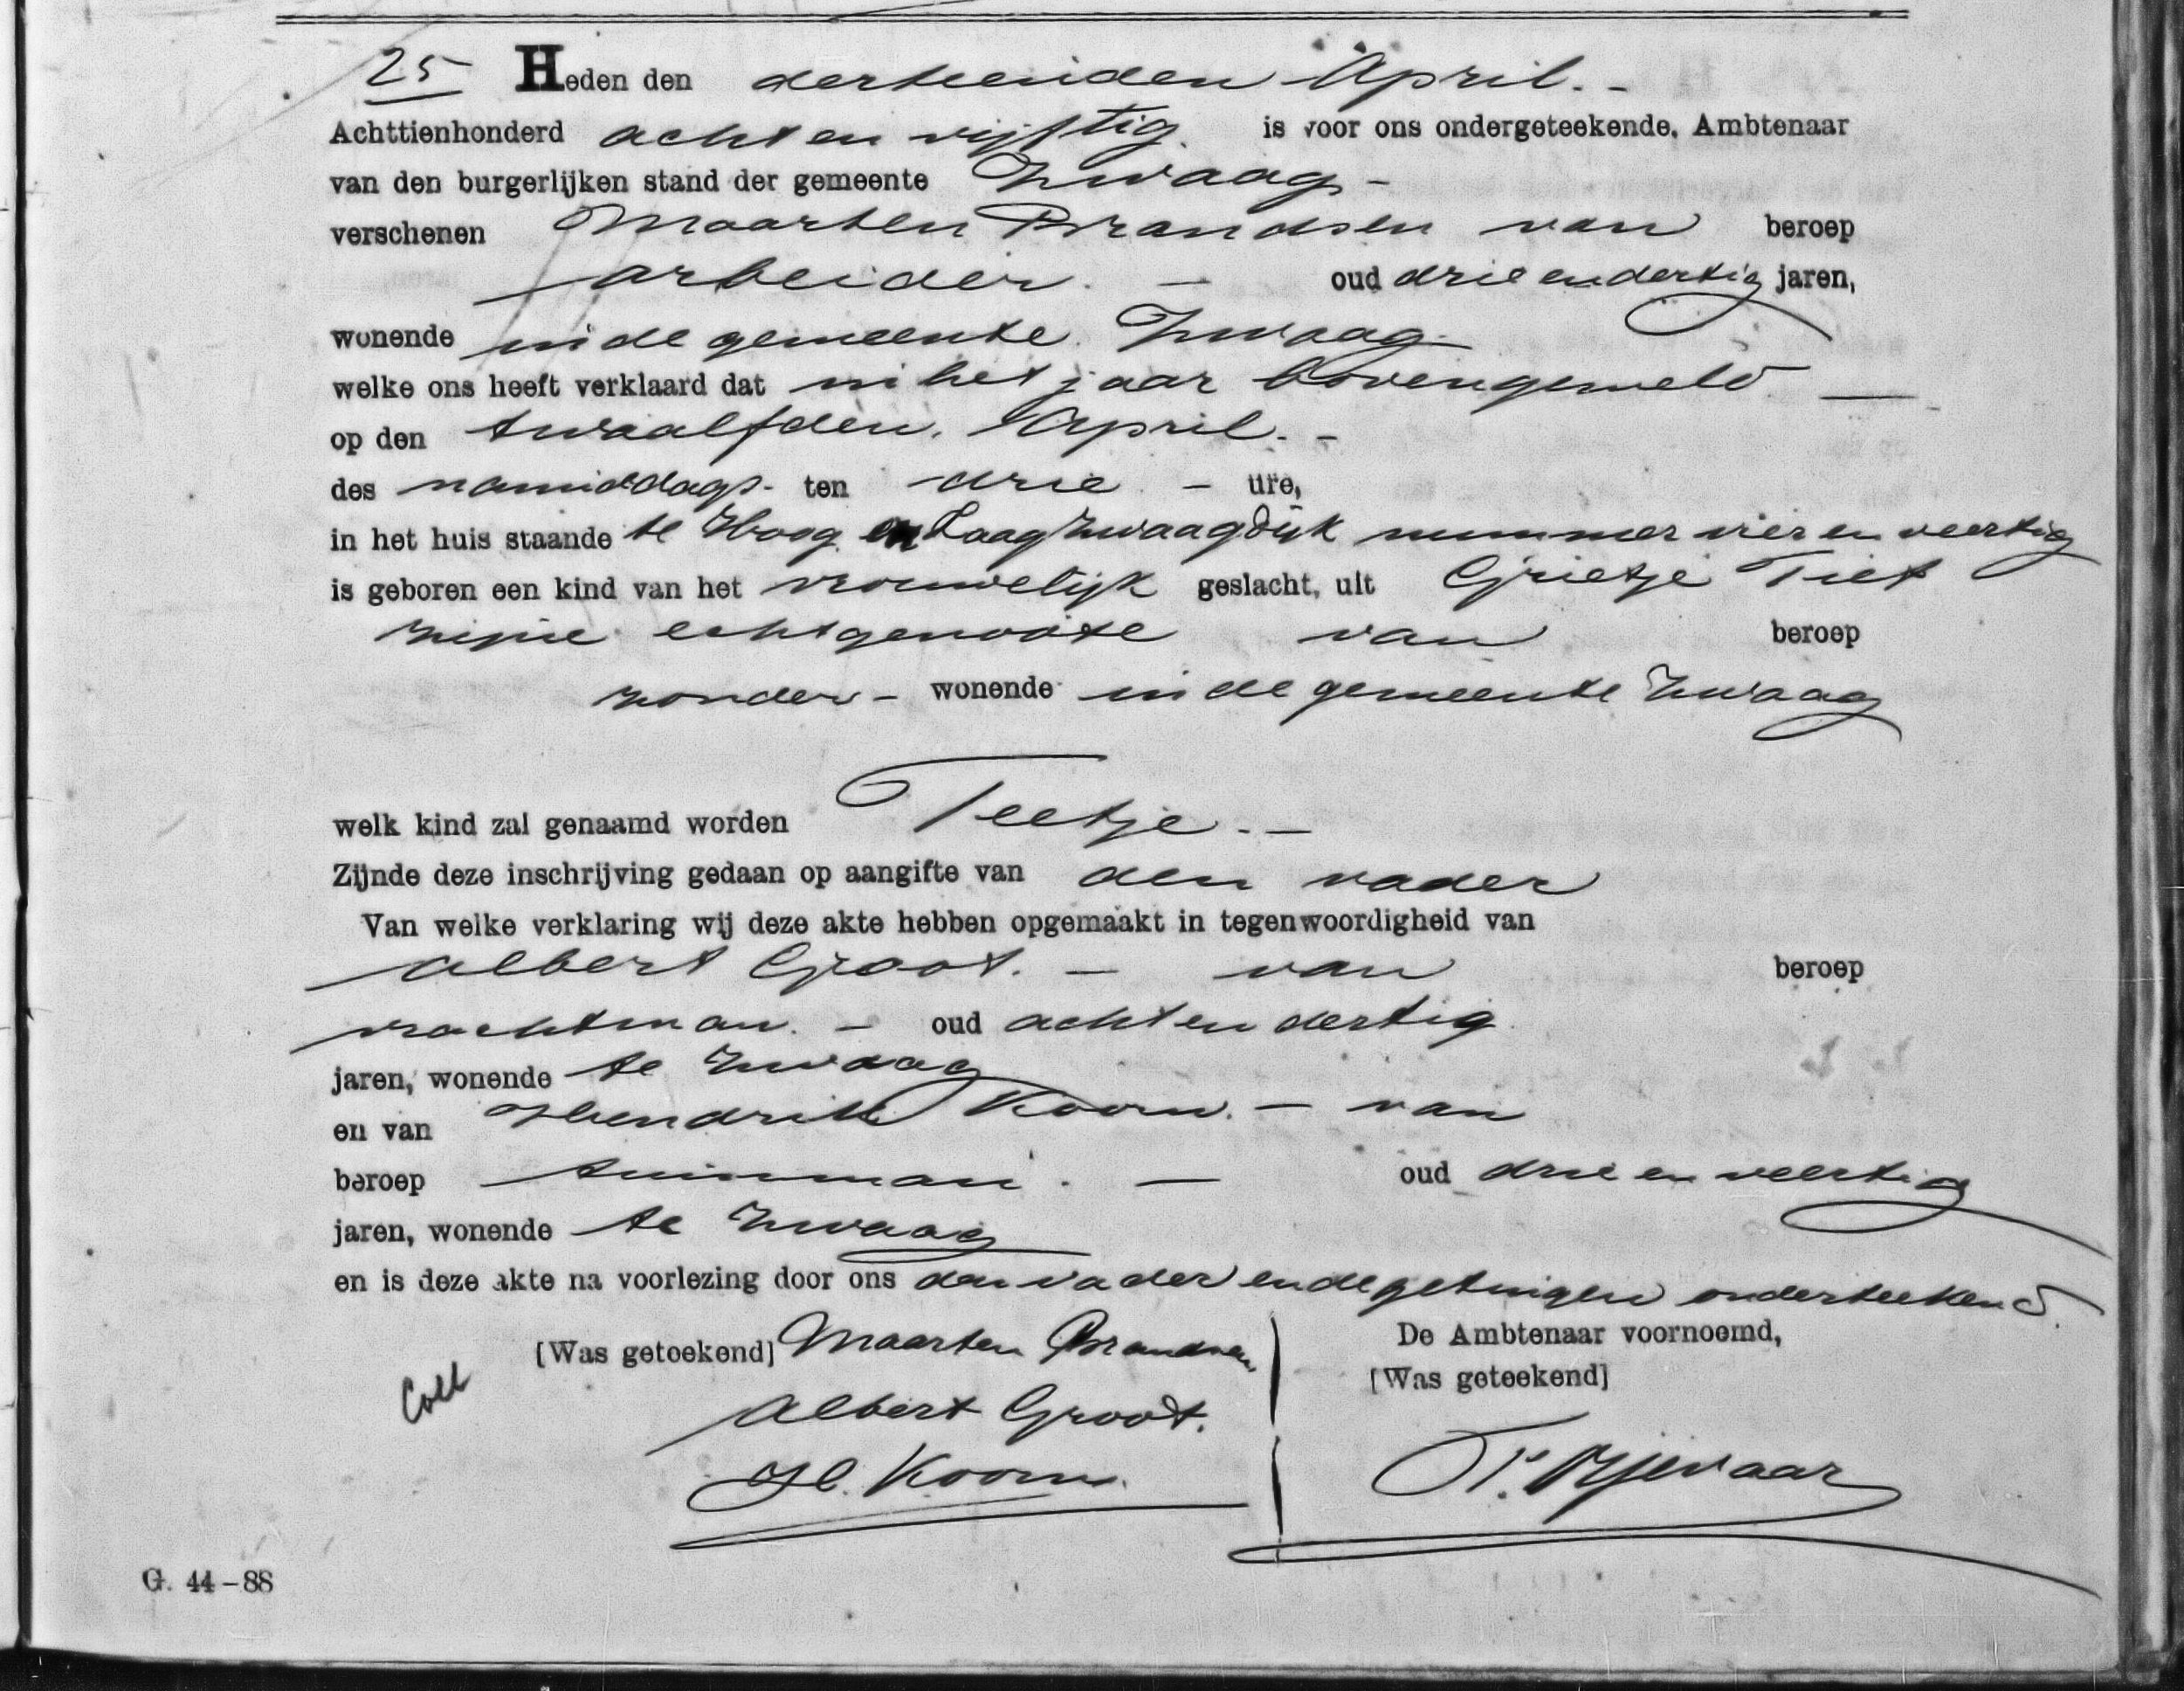 25 Heden den dertienden April. -
Achttienhonderd acht en vijftig is voor ons ondergeteekende, Ambtenaar
van den burgerlijken stand der gemeente Zwaag -
verschenen Maarten Brandsen van beroep
arbeider. - oud drie en dertig jaren,
wonende in de gemeente Zwaag
welke ons heeft verklaard dat in het jaar bovengemeld -
op den twaalfden April. -
des namiddags ten drie - ure,
in het huis staande te Hoog en Laag Zwaagdijk nummer vier en veertig
is geboren een kind van het vrouwelijk geslacht, uit Grietje Tiet
zijne echtgenoote van beroep
zonder - wonende in de gemeente Zwaag
welk kind zal genaamd worden Teetje. -
Zijnde deze inschrijving gedaan op aangifte van den vader
Van welke verklaring wij deze akte hebben opgemaakt in tegenwoordigheid van
Albert Groot. - van beroep
vrachtman. - oud acht en dertig
jaren, wonende te Zwaag
en van Hendrik Koorn. - van
beroep tuinman. - oud drie en veertig
jaren, wonende te Zwaag
en is deze akte na voorlezing door ons den vader en de getuigen onderteekend.
[Was geteekend] Maarten Brandsen, De Ambtenaar voornoemd,
Coll Albert Groot. [Was geteekend]
H. Koorn.
G. 44-88